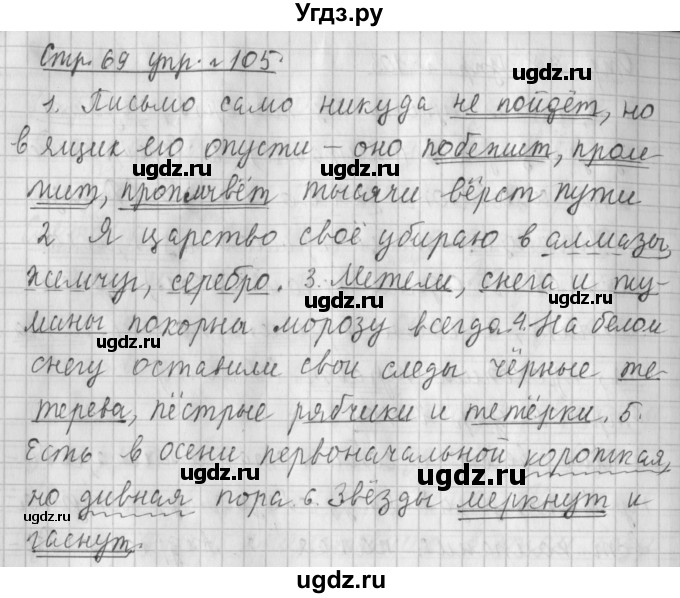 Угдз.ру
Стр. 69 упр. № 105.
ugdz.ru
1. Письмо само никуда не пойдёт, но
ugdz.ru
в ящик его опусти – оно побежит, проле-
ugdz.ru
жит, проплывёт тысячи вёрст пути
2 Я царство своё убираю в алмазы,
ugdz.ru
жемчуг, серебро. 3. Метели, снега и ту-
ugdz.ru
маны покорны морозу всегда. 4. На белом
ugdz.ru
снегу оставили свои следы чёрные те-
ugdz.ru
терева, пёстрые рябчики и тетёрки. 5.
ugdz.ru
Есть в осени первоначальной короткая,
ugdz.ru ugdz.ru
но дивная пора 6. Звёзды меркнут и
ugdz.ru ugdz.ru
гаснут.
ugdz.ru
ugdz.ru